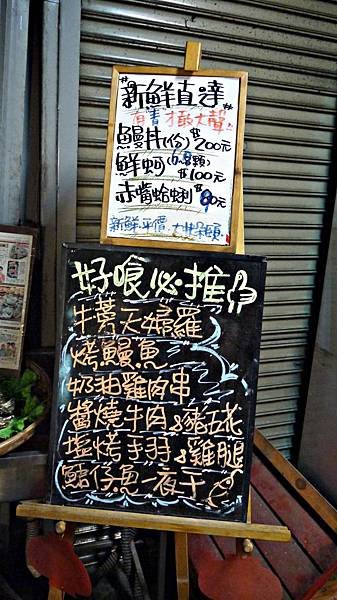 新鮮直達
有青才敢大聲
鰻丼(份)$200元
鮮蚵(6-8顆)$100元
赤嘴蛤蜊$90元
新鮮.平價.大块朵頤
好喰必推
牛蒡天婦羅
烤鰻魚
奶油雞肉串
醬燒牛肉&豬五花
塩烤手羽&雞腿
鯖仔魚一夜干